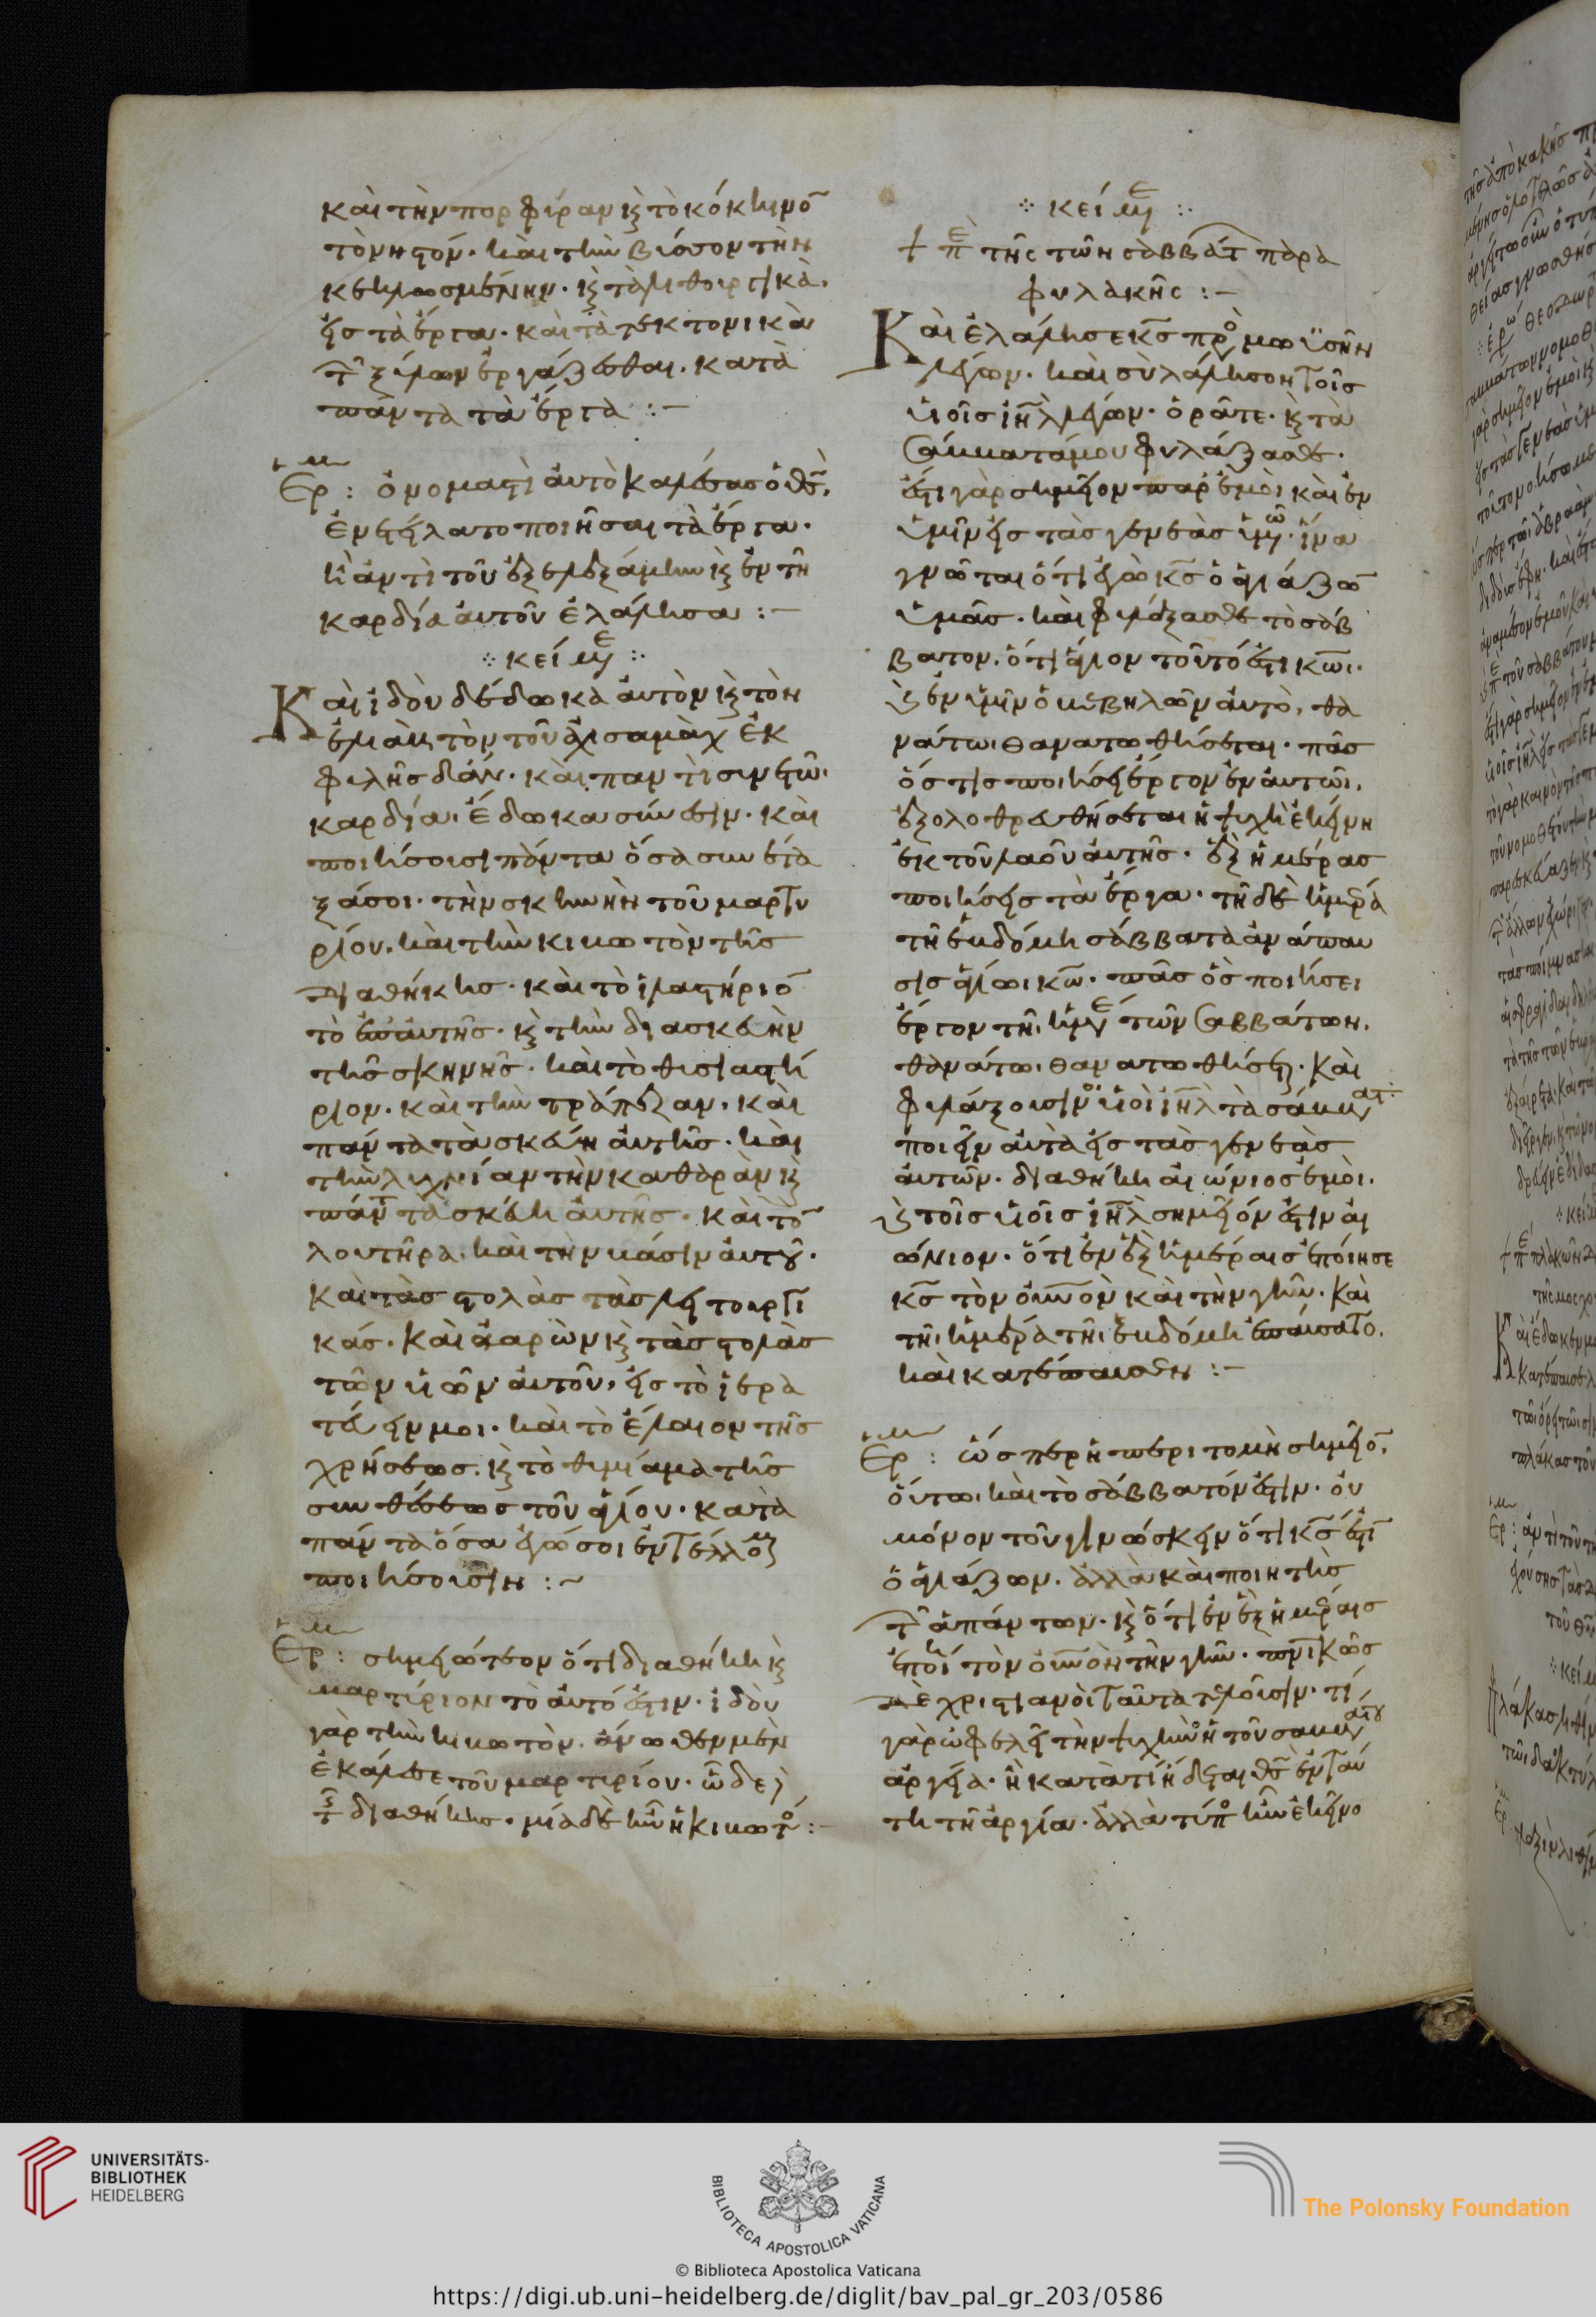 καὶ τὴν πορφύραν κ̀ τὸ κόκκινο̅
τὸ νηστόν· καὶ τὴν βύσσον τὴν
κεκλωσμένην· κ̀ τὰ λιθουργικὰ·
εἰς τὰ ἔργα· καὶ τὰ τεκτονικὰ
τῶ̅ ξύλων ἐργάζεσθαι· κατὰ
πάντα τὰ ἔργα :—
Ἑρμ : ὀνομαστὶ αὐτὸ καλέσας ὁ θ̅ς̅,
ἐνετείλατο ποιῆσαι τὰ ἔργα·
ἢ ἀντὶ τοῦ ἐξελεξάμην κ̀ ἐν τῆ
καρδία αὐτοῦ ἐλάλησα :—
κείμε
Καὶ ἰδοὺ δέδωκα αὐτὸν κ̀ τὸν
ἐλιὰβ τὸν τοῦ ἀχισαμὰχ ἐκ
φυλῆς δάν· καὶ παντὶ συνετῶ·
καρδία· ἔδωκα σύνεσιν· καὶ
ποιήσουσι πάντα ὅσα συνέτα
ξά σοι· τὴν σκηνὴν τοῦ μαρτυ
ρίου· καὶ τὴν κιβωτὸν τῆς
διαθήκης· καὶ τὸ ἱλαστήριο̅
τὸ ἐπ' αὐτῆς· κ̀ τὴν διασκευὴν
τῆς σκηνῆς· καὶ τὸ θυσιαστή
ριον· καὶ τὴν τράπεζαν· καὶ
πάντα τὰ σκεύη αὐτῆς· καὶ
τὴν λυχνίαν τὴν καθαρὰν κ̀
πάντα τὰ σκεύη αὐτῆς· καὶ τὸ̅
λουτῆρα· καὶ τὴν βάσιν αὐτοῦ·
καὶ τὰς στολὰς τὰς λειτουργι
κάς· καὶ ἀαρὼν κ̀ τὰς στολὰς
τῶν υἱῶν αὐτοῦ, εἰς τὸ ἱερα
τεύειν μοι· καὶ τὸ ἔλαιον τῆς
χρήσεως· κ̀ τὸ θυμίαμα τῆς
συνθέσεως τοῦ ἁγίου· κατὰ
πάντα ὅσα ἐγώ σοι ἐντέλλομ
ποιήσουσιν :~
Ἑρμ : σημειώτεον ὅτι διαθήκη κ̀
μαρτύριον τὸ αὐτό ἐστιν· ἰδοὺ
γὰρ τὴν κιβωτὸν· ἄνωθεν μὲν
ἐκάλεσε τοῦ μαρτυρίου· ὧδε
τῆς διαθήκης· μία δὲ ἦν ἡ κιβωτὸ :—
κείμε
+ πε τῆς τῶν σαββάτ παρα
φυλακῆς :—
Καὶ ἐλάλησε κ̅ς̅ προ μωϋσῆν
λέγων· καὶ σὺ λάλησον τοῖς
υἱοῖς ι̅η̅λ̅ λέγων· ὁρᾶτε· κ̀ τὰ
σάββατά μου φυλάξασθε·
ἔστι γὰρ σημεῖον παρ' ἐμοὶ καὶ ἐν
ὑμῖν εἰς τὰς γενεὰς ὑμῶ· ἵνα
γνῶται ὅτι ἐγὼ κ̅ς̅ ὁ ἁγιάζω̅
ὑμᾶς· καὶ φυλάξασθε τὸ σάβ
βατον, ὅτι ἅγιον τοῦτό ἐστι κ̅ω̅ι·
κ̀ ἐν ὑμῖν ὁ βεβηλῶν αὐτὸ, θα
νάτωι θανατωθήσεται· πᾶς
ὅστις ποιήσει ἔργον ἐν αὐτῶι,
ἐξολοθρευθήσεται ἡ ψυχὴ ἐκείνη
ἐκ τοῦ λαοῦ αὐτῆς· ἓξ ἡμέρας
ποιήσεις τὰ ἔργα· τῆ δὲ ἡμέρα
τῆ ἑβδόμη σάββατα ἀνάπαυ
σις ἁγία κ̅ω̅· πᾶς ὃς ποιήσει
ἔργον τῆι ἡμέ τῶν σαββάτων,
θανάτωι θανατωθήσετ· καὶ
φυλάξουσιν οἱ υἱοὶ ι̅η̅λ̅ τὰ σάββατ·
ποιεῖν αὐτὰ εἰς τὰς γενεὰς
αὐτῶν· διαθήκη αἰώνιος ἐμοὶ·
κ̀ τοῖς υἱοῖς ι̅η̅λ̅ σημεῖόν ἐστιν αἰ
ώνιον· ὅτι ἐν ἓξ ἡμέραις ἐποίησε
κ̅ς̅ τὸν ο̅υ̅ν̅ον καὶ τὴν γῆν· καὶ
τῆι ἡμέρα τῆι ἑβδόμη ἐπαύσατο,
καὶ κατέπαυσεν :—
Ἑρμ : ὥσπερ ἡ περιτομὴ σημεῖο̅,
οὕτωι καὶ τὸ σάββατόν ἐστιν· οὐ
μόνον τοῦ γινώσκειν ὅτι κ̅ς̅ ἐστὶ
ὁ ἁγιάζων· ἀλλὰ καὶ ποιητὴς
τῶ̅ ἁπάντων· κ̀ ὅτι ἐν ἓξ ἡμέραις
ἐποίη τὸν ο̅υ̅ν̅ὸν τὴν γῆν· π̅ν̅ικῶς
δὲ χριστιανοὶ ταῦτα τελοῦσιν· τί
γὰρ ὠφελεῖ τὴν ψυχὴν ἡ τοῦ σαββάτου
ἀργεία· ἢ κατὰ τί ἥδεται θ̅ς̅ ἐνταύ
τη τῆ ἀργία· ἀλλὰ τύπο ἦν ἐκεῖνο
UNIVERSITÄTS-
BIBLIOTHEK
HEIDELBERG
BIBLIOTECA APOSTOLICA VATICANA
The Polonsky Foundation
© Biblioteca Apostolica Vaticana
https://digi.ub.uni-heidelberg.de/diglit/bav_pal_gr_203/0586